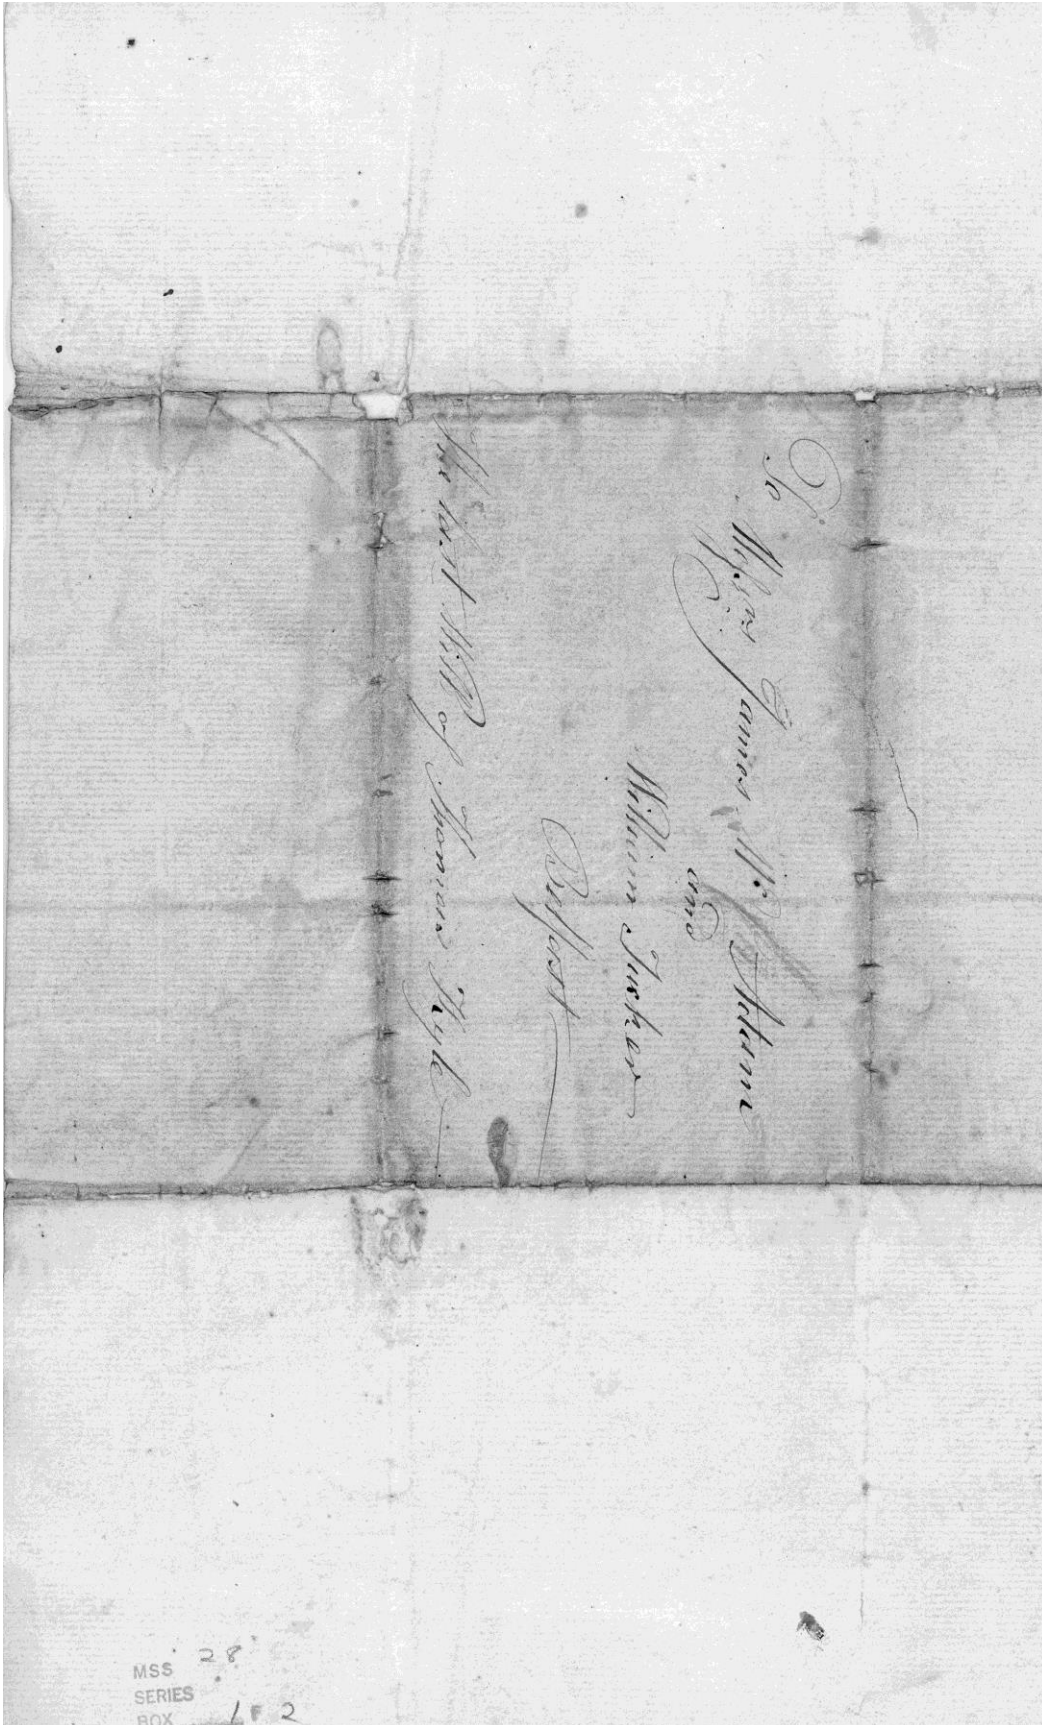 To
Messrs James Mc Adam
and
William Tucker
Belfast
The last Will of Thomas Kyle
MSS 28
SERIES
BOX 1 F 2